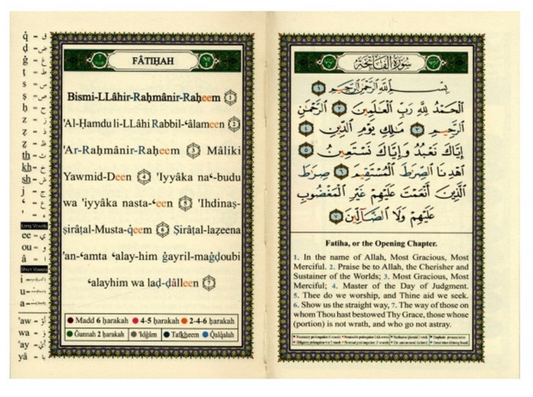 FÂTIḤAH
Bismi-LLâhir-Raḥmânir-Raḥeem 1
'Al-Ḥamdu li-LLâhi Rabbil-ʻâlameen 2
'Ar-Raḥmânir-Raḥeem 3 Mâliki
Yawmid-Deen 4 'Iyyâka na-ʻbudu
wa 'iyyâka nasta-ʻeen 5 'Ihdinaṣ-
ṣirâṭal-Musta-q̇eem 6 Ṣirâṭal-laẓeena
'an-ʻamta ʻalay-him g̣ayril-mag̣ḍoubi
ʻalayhim wa laḍ-ḍâlleen 7
Madd 6 ḥarakah 4-5 ḥarakah 2-4-6 ḥarakah
Ġunnah 2 ḥarakah 'Idġâm Tafkheem Qalqalah
سُورَةُ الفَاتِحَةِ
بِسْمِ اللَّهِ الرَّحْمَٰنِ الرَّحِيمِ ١
الْحَمْدُ لِلَّهِ رَبِّ الْعَالَمِينَ ٢ الرَّحْمَٰنِ
الرَّحِيمِ ٣ مَالِكِ يَوْمِ الدِّينِ ٤
إِيَّاكَ نَعْبُدُ وَإِيَّاكَ نَسْتَعِينُ ٥
اهْدِنَا الصِّرَاطَ الْمُسْتَقِيمَ ٦ صِرَاطَ
الَّذِينَ أَنْعَمْتَ عَلَيْهِمْ غَيْرِ الْمَغْضُوبِ
عَلَيْهِمْ وَلَا الضَّالِّينَ ٧
Fatiha, or the Opening Chapter.
1. In the name of Allah, Most Gracious, Most
Merciful. 2. Praise be to Allah, the Cherisher and
Sustainer of the Worlds; 3. Most Gracious, Most
Merciful; 4. Master of the Day of Judgment.
5. Thee do we worship, and Thine aid we seek.
6. Show us the straight way, 7. The way of those on
whom Thou hast bestowed Thy Grace, those whose
(portion) is not wrath, and who go not astray.